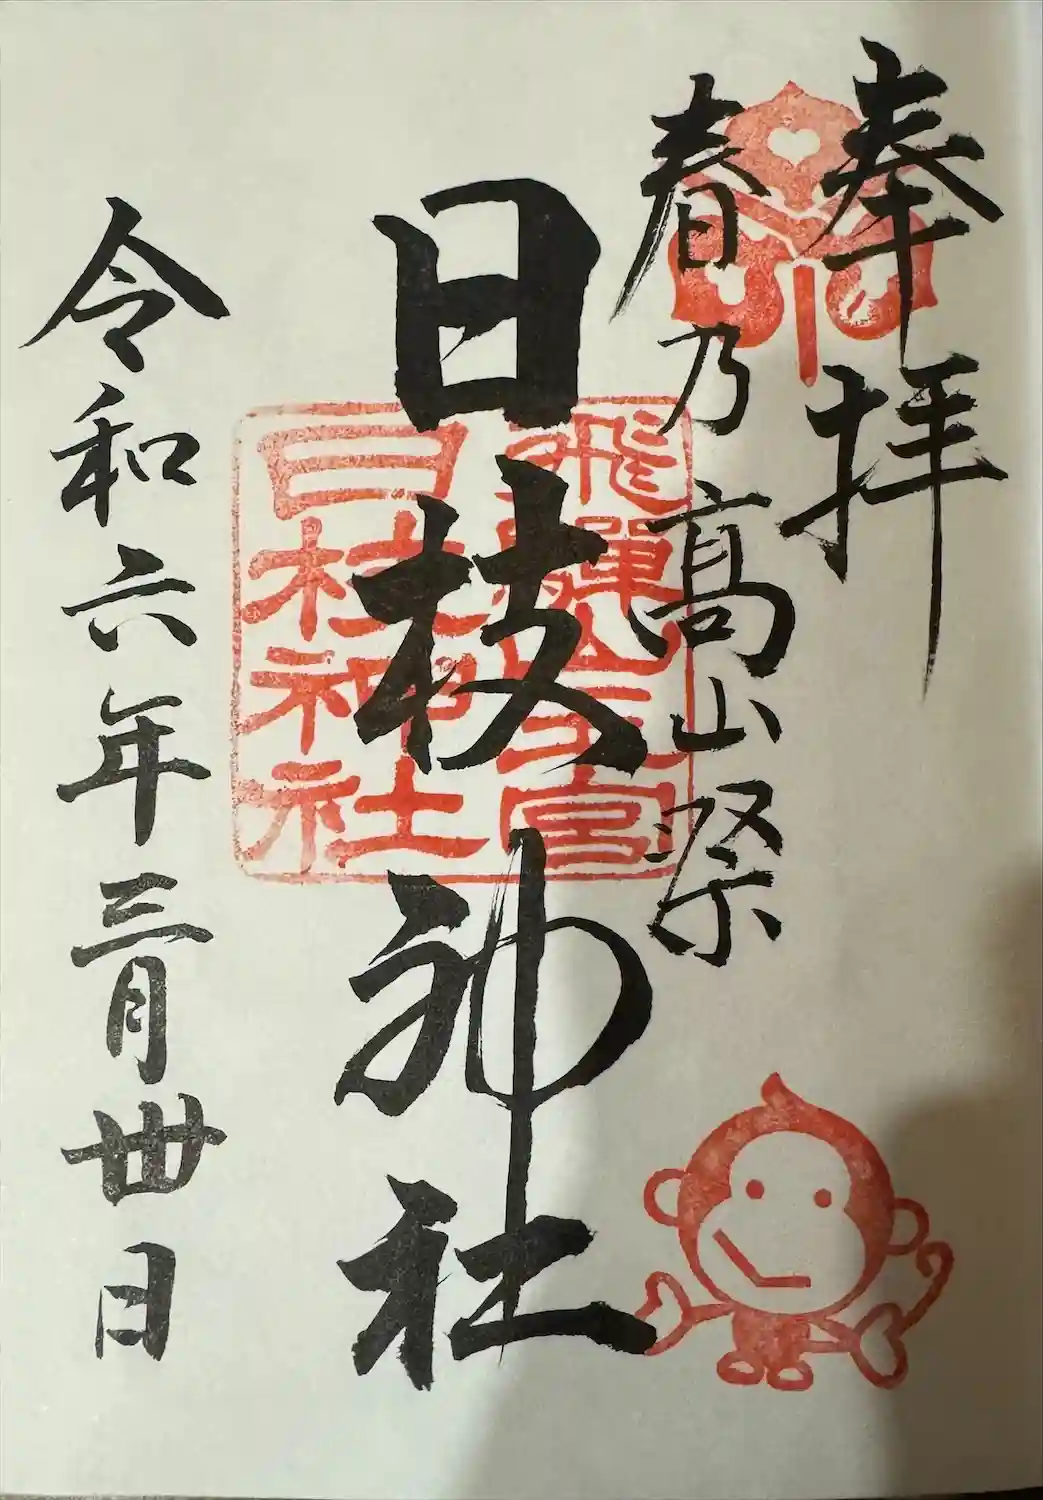 奉拝
春乃高山祭
日枝神社
飛騨山王宮
日枝神社
令和六年三月丗日